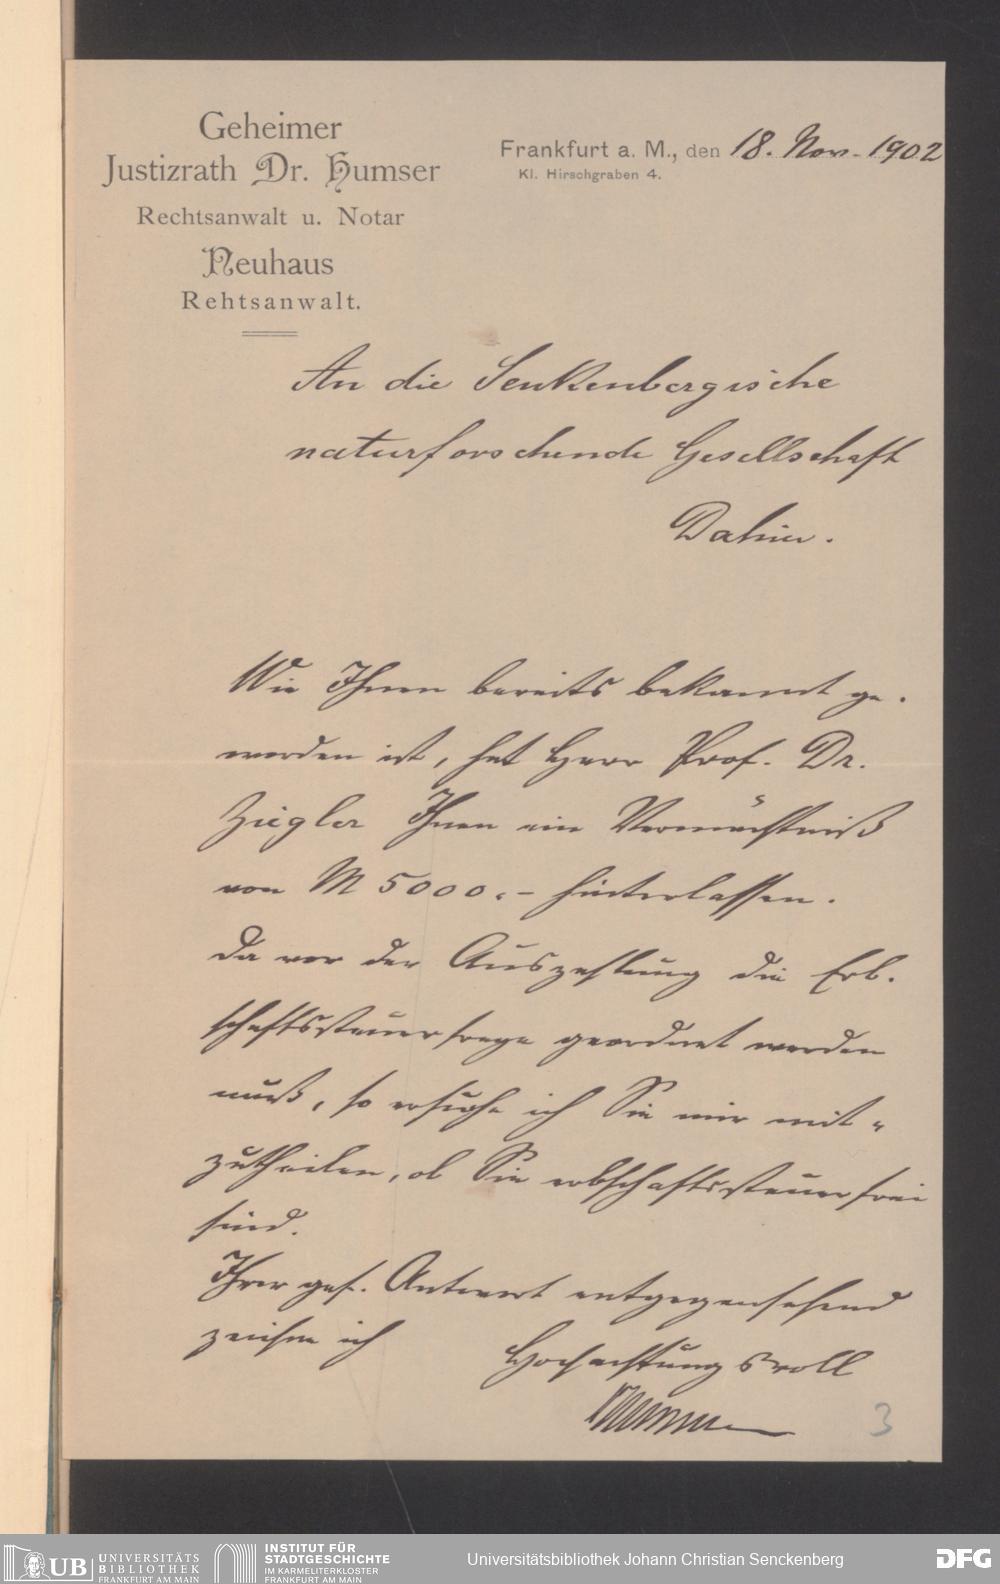 Geheimer
Justizrath Dr. Humser
Rechtsanwalt u. Notar
Neuhaus
Rehtsanwalt.
Frankfurt a. M., den 18. Nov. 1902
Kl. Hirschgraben 4.
An die Senkenbergische
naturforschende Gesellschaft
Dahier.
Wie Ihnen bereits bekannt ge-
worden ist, hat Herr Prof. Dr.
Ziegler Ihnen ein Vermächtniß
von M 5000.- hinterlassen.
Da vor der Auszahlung die Erb-
schaftssteuerfrage geordnet werden
muß, so ersuche ich Sie mir mit-
zutheilen, ob Sie erbschaftssteuerfrei
sind.
Ihrer gef. Antwort entgegensehend
zeichne ich
Hochachtungsvoll
3
UB UNIVERSITÄTS
BIBLIOTHEK
FRANKFURT AM MAIN
INSTITUT FÜR
STADTGESCHICHTE
IM KARMELITERKLOSTER
FRANKFURT AM MAIN
Universitätsbibliothek Johann Christian Senckenberg
DFG